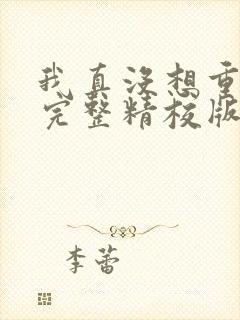 我真没想重
完整精校版
李蕾